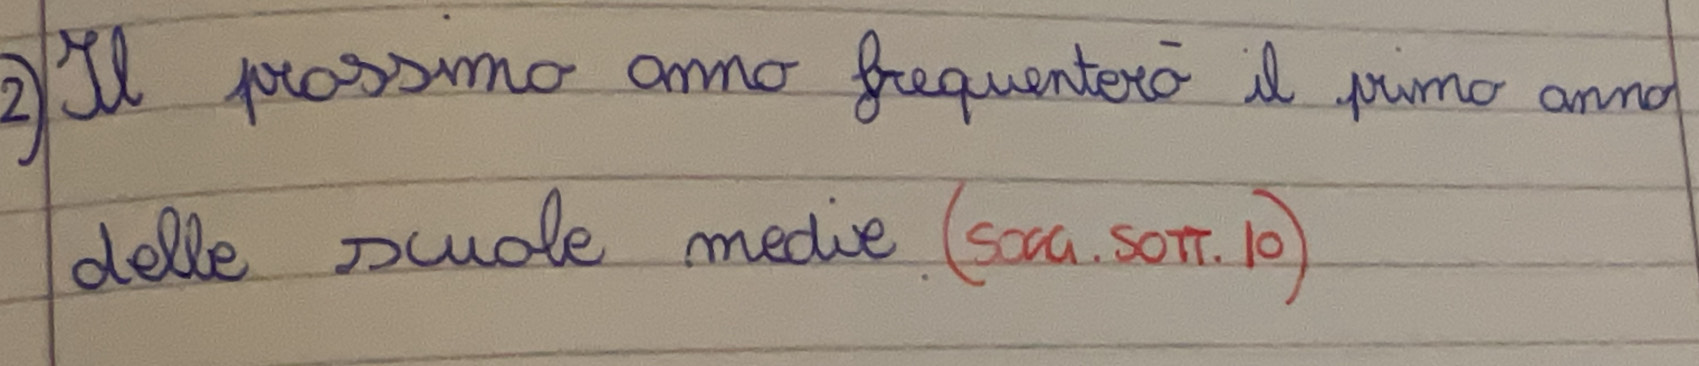 2) Il prossimo anno frequenterò il primo anno
delle scuole medie. (sogg. sott. io)